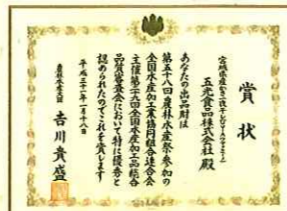 賞状
五光食品株式会社 殿
あなたの出品財は
第五十八回農林水産祭参加の
全国水産加工業協同組合連合会
主催第二十九回全国水産加工品総合
品質審査会において特に優秀と
認められたのでこれを賞します
平成三十一年一月十八日
農林水産大臣
吉川貴盛